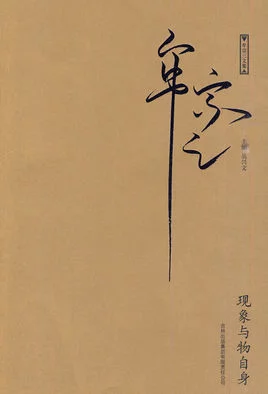 牟宗三文集
牟宗三
主编 吴兴文
现象与物自身
吉林出版集团有限责任公司